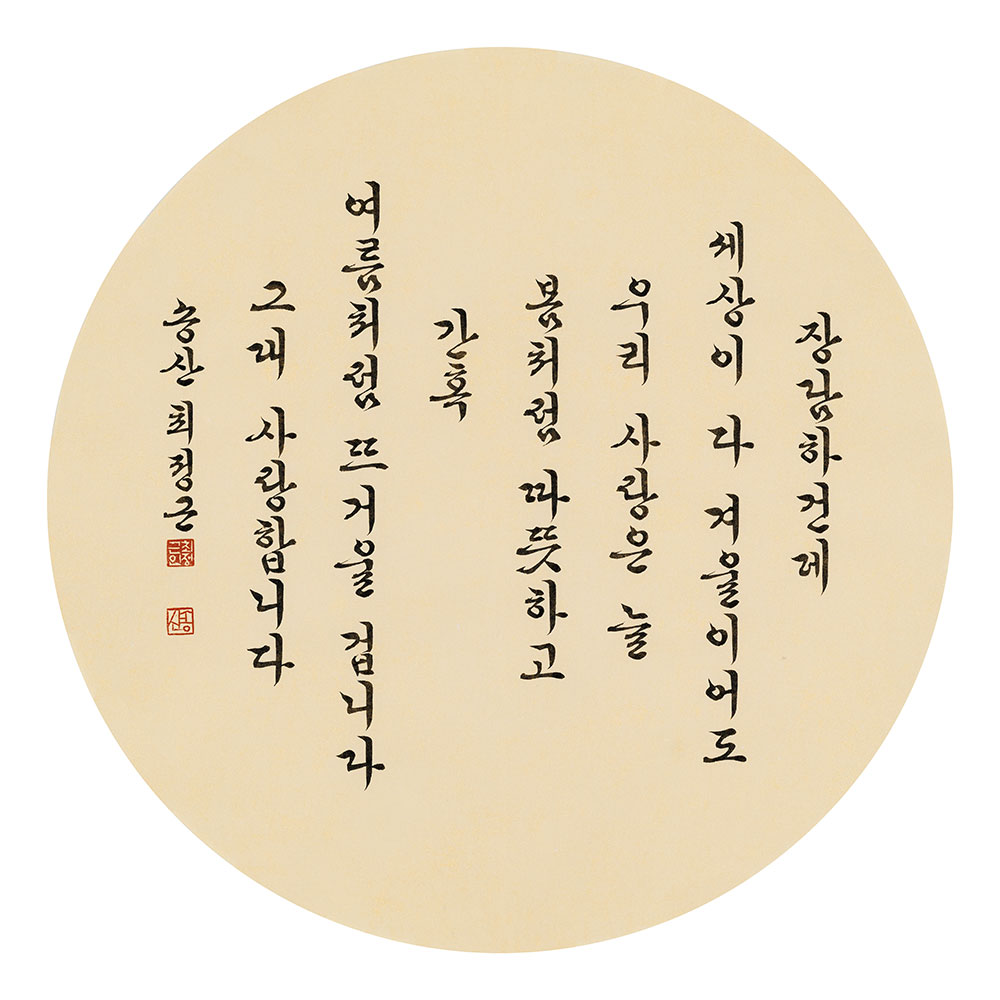 장담하건데
세상이 다 겨울이어도
우리 사랑은 늘
봄처럼 따뜻하고
간혹
여름처럼 뜨거울 겁니다
그대 사랑합니다
송산 최정근